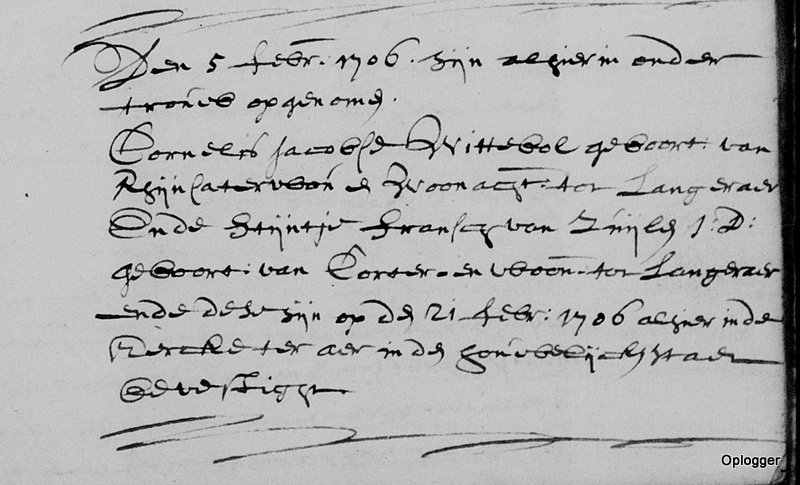 Den 5 febr: 1706. zijn alhier in onder
trouw opgenomē.
Cornelis Jacobse Wittebol geboort: van
Rhijnsaterwoude Woonacht: tot Langeraer
Ende Stijntje Fransz van Zuijlē J: D:
geboort: van Corter-en woon: tot Langeraer
ende dese zijn op dē 21 febr: 1706 alhier inde
Kercke ter aer in dē houwelijck staet
bevestight
Oplogger